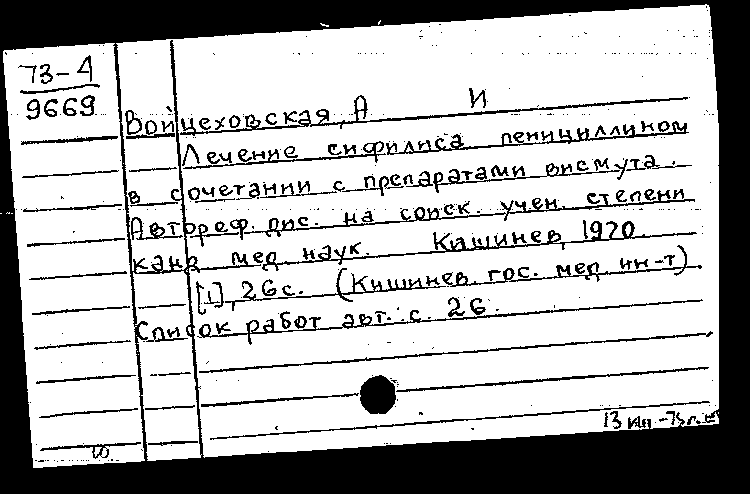 73-4
9669
Войцеховская, А И
Лечение сифилиса пенициллином
в сочетании с препаратами висмута.
Автореф. дис. на соиск. учен. степени
канд. мед. наук. Кишинев, 1970.
[1], 26 с. (Кишинев. гос. мед. ин-т).
Список работ авт.: с. 26.
13